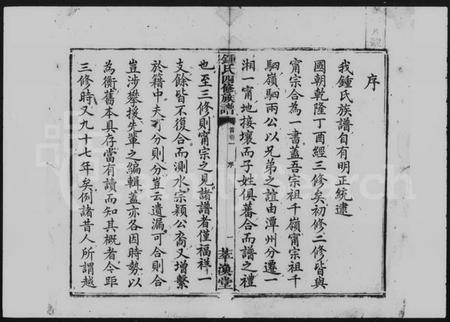 序
我鍾氏族譜自有明正統逮
國朝乾隆丁酉經三修矣初修二修皆與
甯宗合為一書蓋吾宗祖千嶺甯宗祖千
駟嶺駟兩公以兄弟之誼由潭州分遷一
湘一甯地接壤而子姓俱蕃合而譜之禮
也至三修則甯宗之見諸譜者僅福祺一
支餘皆不復合而測水宗穎公裔又增繫
於籍中夫可分則分豈云遺漏可合則合
豈涉攀援先輩之編輯蓋亦各因時勢以
為衡舊本具存當有讀而知其概者今距
三修時又九十七年矣例諸昔人所謂越
鍾氏四修族譜
首卷一 序
一 萃渙堂